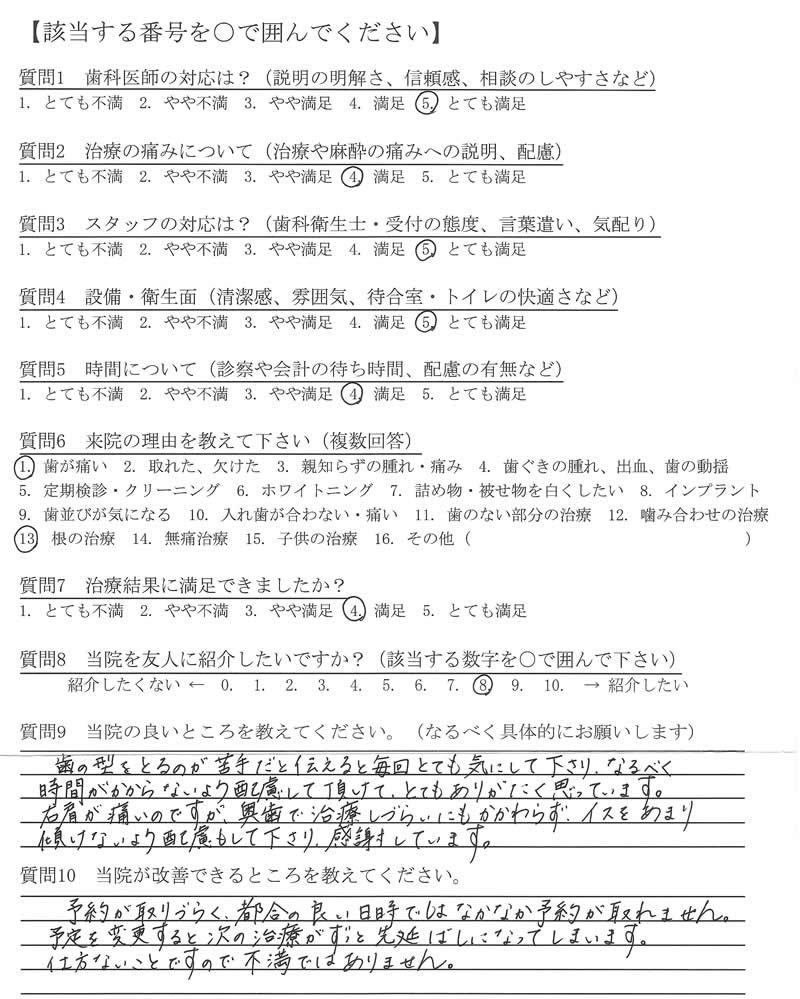 【該当する番号を○で囲んでください】
質問1　歯科医師の対応は？（説明の明解さ、信頼感、相談のしやすさなど）
1. とても不満　2. やや不満　3. やや満足　4. 満足　5. とても満足
質問2　治療の痛みについて（治療や麻酔の痛みへの説明、配慮）
1. とても不満　2. やや不満　3. やや満足　4. 満足　5. とても満足
質問3　スタッフの対応は？（歯科衛生士・受付の態度、言葉遣い、気配り）
1. とても不満　2. やや不満　3. やや満足　4. 満足　5. とても満足
質問4　設備・衛生面（清潔感、雰囲気、待合室・トイレの快適さなど）
1. とても不満　2. やや不満　3. やや満足　4. 満足　5. とても満足
質問5　時間について（診察や会計の待ち時間、配慮の有無など）
1. とても不満　2. やや不満　3. やや満足　4. 満足　5. とても満足
質問6　来院の理由を教えて下さい（複数回答）
1. 歯が痛い　2. 取れた、欠けた　3. 親知らずの腫れ・痛み　4. 歯ぐきの腫れ、出血、歯の動揺
5. 定期検診・クリーニング　6. ホワイトニング　7. 詰め物・被せ物を白くしたい　8. インプラント
9. 歯並びが気になる　10. 入れ歯が合わない・痛い　11. 歯のない部分の治療　12. 噛み合わせの治療
13. 根の治療　14. 無痛治療　15. 子供の治療　16. その他（　　　）
質問7　治療結果に満足できましたか？
1. とても不満　2. やや不満　3. やや満足　4. 満足　5. とても満足
質問8　当院を友人に紹介したいですか？（該当する数字を○で囲んで下さい）
紹介したくない ← 0. 1. 2. 3. 4. 5. 6. 7. 8. 9. 10. → 紹介したい
質問9　当院の良いところを教えてください。（なるべく具体的にお願いします）
歯の型をとるのが苦手だと伝えると毎回とても気にして下さり、なるべく
時間がかからないよう配慮して頂けて、とてもありがたく思っています。
右肩が痛いのですが、奥歯で治療しづらいにもかかわらず、イスをあまり
傾けないよう配慮もして下さり、感謝しています。
質問10　当院が改善できるところを教えてください。
予約が取りづらく、都合の良い日時ではなかなか予約が取れません。
予定を変更すると次の治療がずっと先延ばしになってしまいます。
仕方ないことですので不満ではありません。